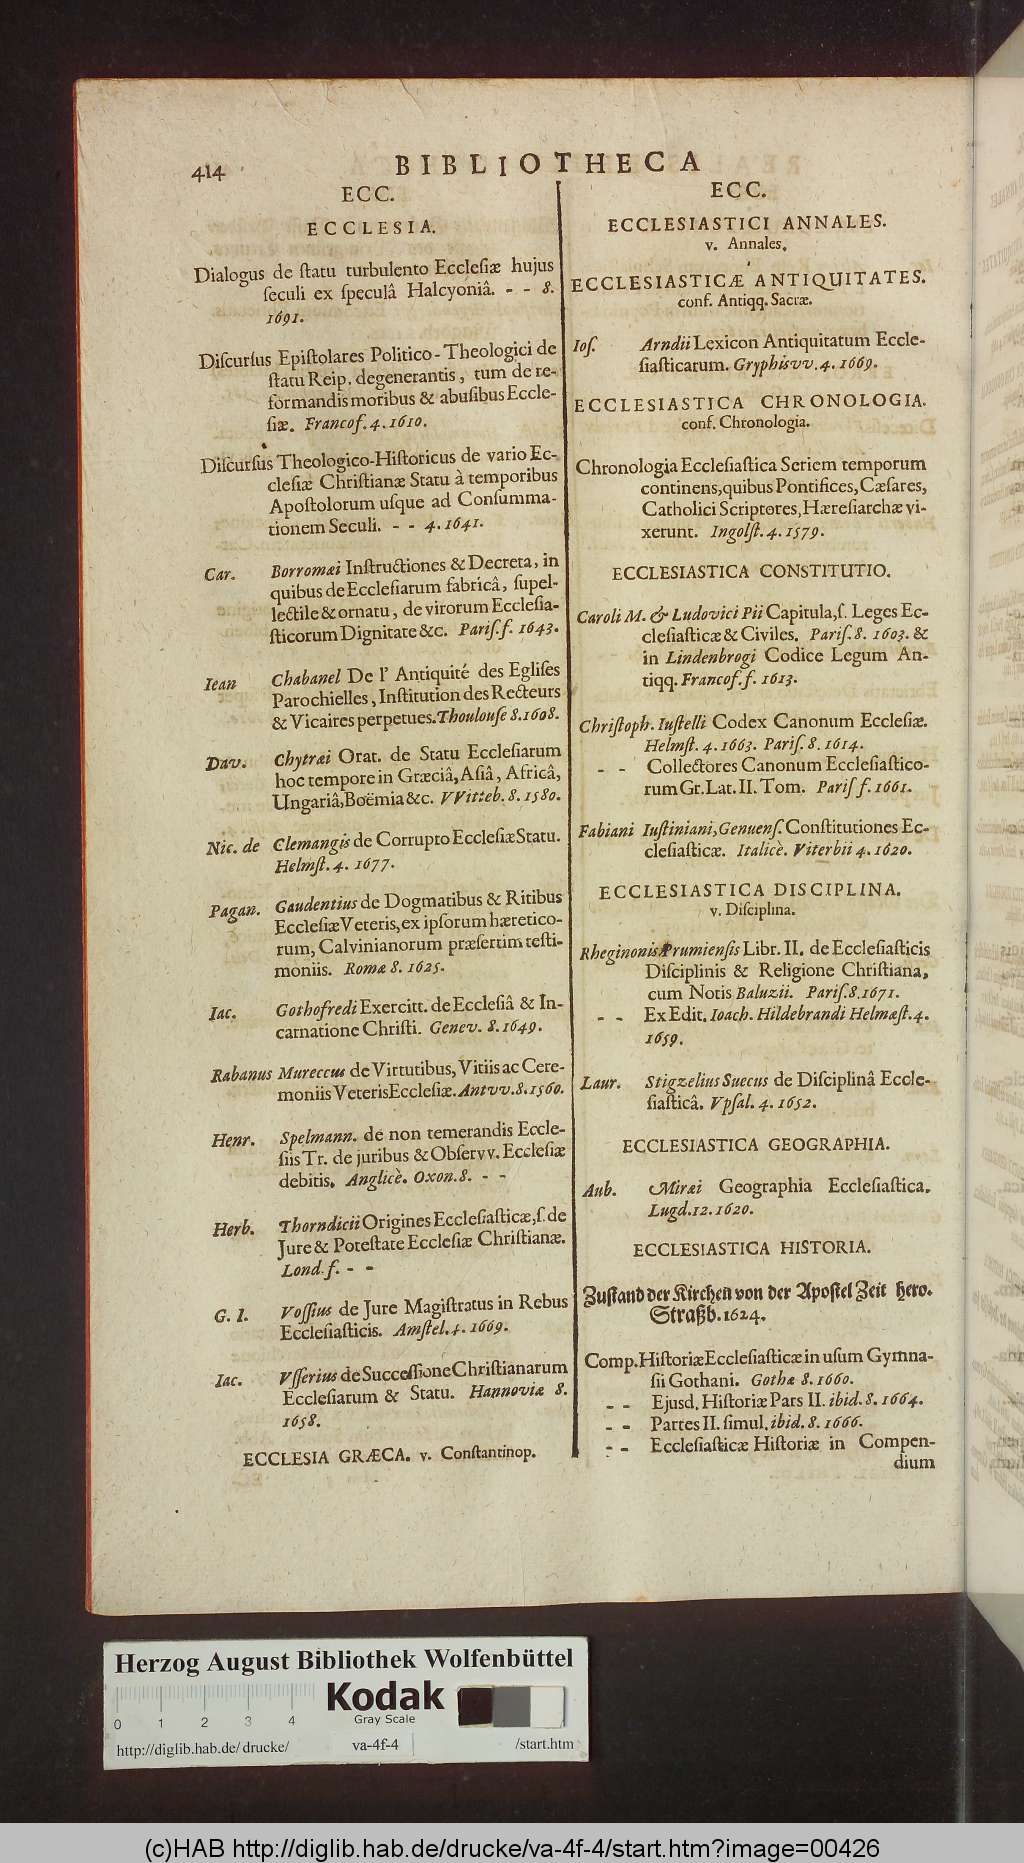 414
BIBLIOTHECA
ECC.
ECCLESIA.
Dialogus de ſtatu turbulento Eccleſiæ hujus
ſeculi ex ſpeculâ Halcyoniâ. - - 8.
1691.
Diſcurſus Epiſtolares Politico-Theologici de
ſtatu Reip. degenerantis, tum de re-
formandis moribus & abuſibus Eccle-
ſiæ. Francof. 4. 1610.
Diſcurſus Theologico-Hiſtoricus de vario Ec-
cleſiæ Chriſtianæ Statu à temporibus
Apoſtolorum uſque ad Conſumma-
tionem Seculi. - - 4. 1641.
Car. Borromæi Inſtructiones & Decreta, in
quibus de Eccleſiarum fabricâ, ſupel-
lectile & ornatu, de virorum Eccleſia-
ſticorum Dignitate &c. Pariſ. f. 1643.
Iean Chabanel De l' Antiquité des Egliſes
Parochielles, Inſtitution des Recteurs
& Vicaires perpetues. Thoulouſe 8. 1608.
Dav. Chytræi Orat. de Statu Eccleſiarum
hoc tempore in Græciâ, Aſiâ, Africâ,
Ungariâ, Boëmia &c. VVitteb. 8. 1580.
Nic. de Clemangis de Corrupto Eccleſiæ Statu.
Helmſt. 4. 1677.
Pagan. Gaudentius de Dogmatibus & Ritibus
Eccleſiæ Veteris, ex ipſorum hæretico-
rum, Calvinianorum præſertim teſti-
moniis. Romæ 8. 1625.
Iac. Gothofredi Exercitt. de Eccleſiâ & In-
carnatione Chriſti. Genev. 8. 1649.
Rabanus Mureccus de Virtutibus, Vitiis ac Cere-
moniis Veteris Eccleſiæ. Antvv. 8. 1560.
Henr. Spelmann. de non temerandis Eccle-
ſiis Tr. de juribus & Obſervv. Eccleſiæ
debitis. Anglicè. Oxon. 8. - -
Herb. Thorndicii Origines Eccleſiaſticæ, ſ. de
Jure & Poteſtate Eccleſiæ Chriſtianæ.
Lond. f. - -
G. I. Voſſius de Jure Magiſtratus in Rebus
Eccleſiaſticis. Amſtel. 4. 1669.
Iac. Vſſerius de Succeſſione Chriſtianarum
Eccleſiarum & Statu. Hannoviæ 8.
1658.
ECCLESIA GRÆCA. v. Conſtantinop.
ECC.
ECCLESIASTICI ANNALES.
v. Annales.
ECCLESIASTICÆ ANTIQUITATES.
conf. Antiqq. Sacræ.
Ioſ. Arndii Lexicon Antiquitatum Eccle-
ſiaſticarum. Gryphisvv. 4. 1669.
ECCLESIASTICA CHRONOLOGIA.
conf. Chronologia.
Chronologia Eccleſiaſtica Seriem temporum
continens, quibus Pontifices, Cæſares,
Catholici Scriptores, Hæreſiarchæ vi-
xerunt. Ingolſt. 4. 1579.
ECCLESIASTICA CONSTITUTIO.
Caroli M. & Ludovici Pii Capitula, ſ. Leges Ec-
cleſiaſticæ & Civiles. Pariſ. 8. 1603. &
in Lindenbrogi Codice Legum An-
tiqq. Francof. f. 1613.
Chriſtoph. Iuſtelli Codex Canonum Eccleſiæ.
Helmſt. 4. 1663. Pariſ. 8. 1614.
- - Collectores Canonum Eccleſiaſtico-
rum Gr. Lat. II. Tom. Pariſ f. 1661.
Fabiani Iuſtiniani, Genuenſ. Conſtitutiones Ec-
cleſiaſticæ. Italicè. Viterbii 4. 1620.
ECCLESIASTICA DISCIPLINA.
v. Diſciplina.
Rheginonis Prumienſis Libr. II. de Eccleſiaſticis
Diſciplinis & Religione Chriſtiana,
cum Notis Baluzii. Pariſ. 8. 1671.
- - Ex Edit. Ioach. Hildebrandi Helmæſt. 4.
1659.
Laur. Stigzelius Suecus de Diſciplinâ Eccle-
ſiaſticâ. Vpſal. 4. 1652.
ECCLESIASTICA GEOGRAPHIA.
Aub. Miræi Geographia Eccleſiaſtica.
Lugd. 12. 1620.
ECCLESIASTICA HISTORIA.
Zuſtand der Kirchen von der Apoſtel Zeit hero.
Straßb. 1624.
Comp. Hiſtoriæ Eccleſiaſticæ in uſum Gymna-
ſii Gothani. Gothæ 8. 1660.
- - Ejusd. Hiſtoriæ Pars II. ibid. 8. 1664.
- - Partes II. ſimul. ibid. 8. 1666.
- - Eccleſiaſticæ Hiſtoriæ in Compen-
dium
Herzog August Bibliothek Wolfenbüttel
Kodak
Gray Scale
0 1 2 3 4
http://diglib.hab.de/drucke/ va-4f-4 /start.htm
(c)HAB http://diglib.hab.de/drucke/va-4f-4/start.htm?image=00426